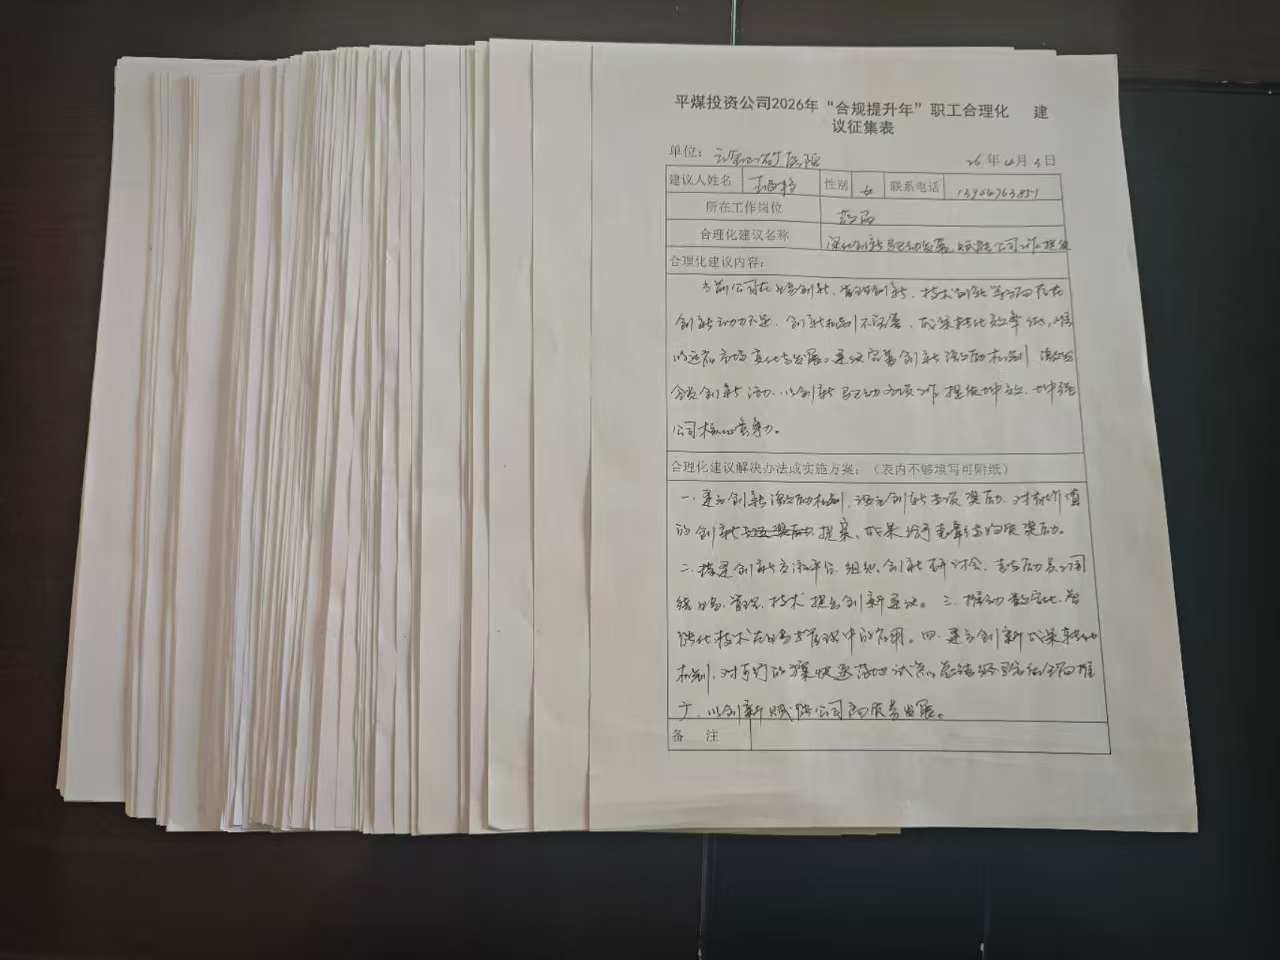 平煤投资公司2026年“合规提升年”职工合理化 建
议征集表
单位： 医院 26年4月3日
建议人姓名 性别 女 联系电话 13904963851
所在工作岗位 药局
合理化建议名称 深化创新驱动发展，赋能公司工作提质
合理化建议内容：
当前公司在业务创新、管理创新、技术创新等方面存在
创新动力不足、创新机制不完善、成果转化效率低，难
以适应市场变化与发展。建议完善创新激励机制 激发
全员创新活力，以创新驱动各项工作提质增效，增强
公司核心竞争力。
合理化建议解决办法或实施方案：（表内不够填写可附纸）
一、建立创新激励机制，设立创新专项奖励，对有价值
的创新提案、成果给予 物质奖励。
二、搭建创新交流平台，组织创新研讨会，鼓励员工围
绕业务、管理、技术提出创新建议。三、推动数字化、智
能化技术在业务与管理中的应用。四、建立创新成果转化
机制，对可行的 快速落地试点，总结经验后全面推
广，以创新赋能公司高质量发展。
备 注